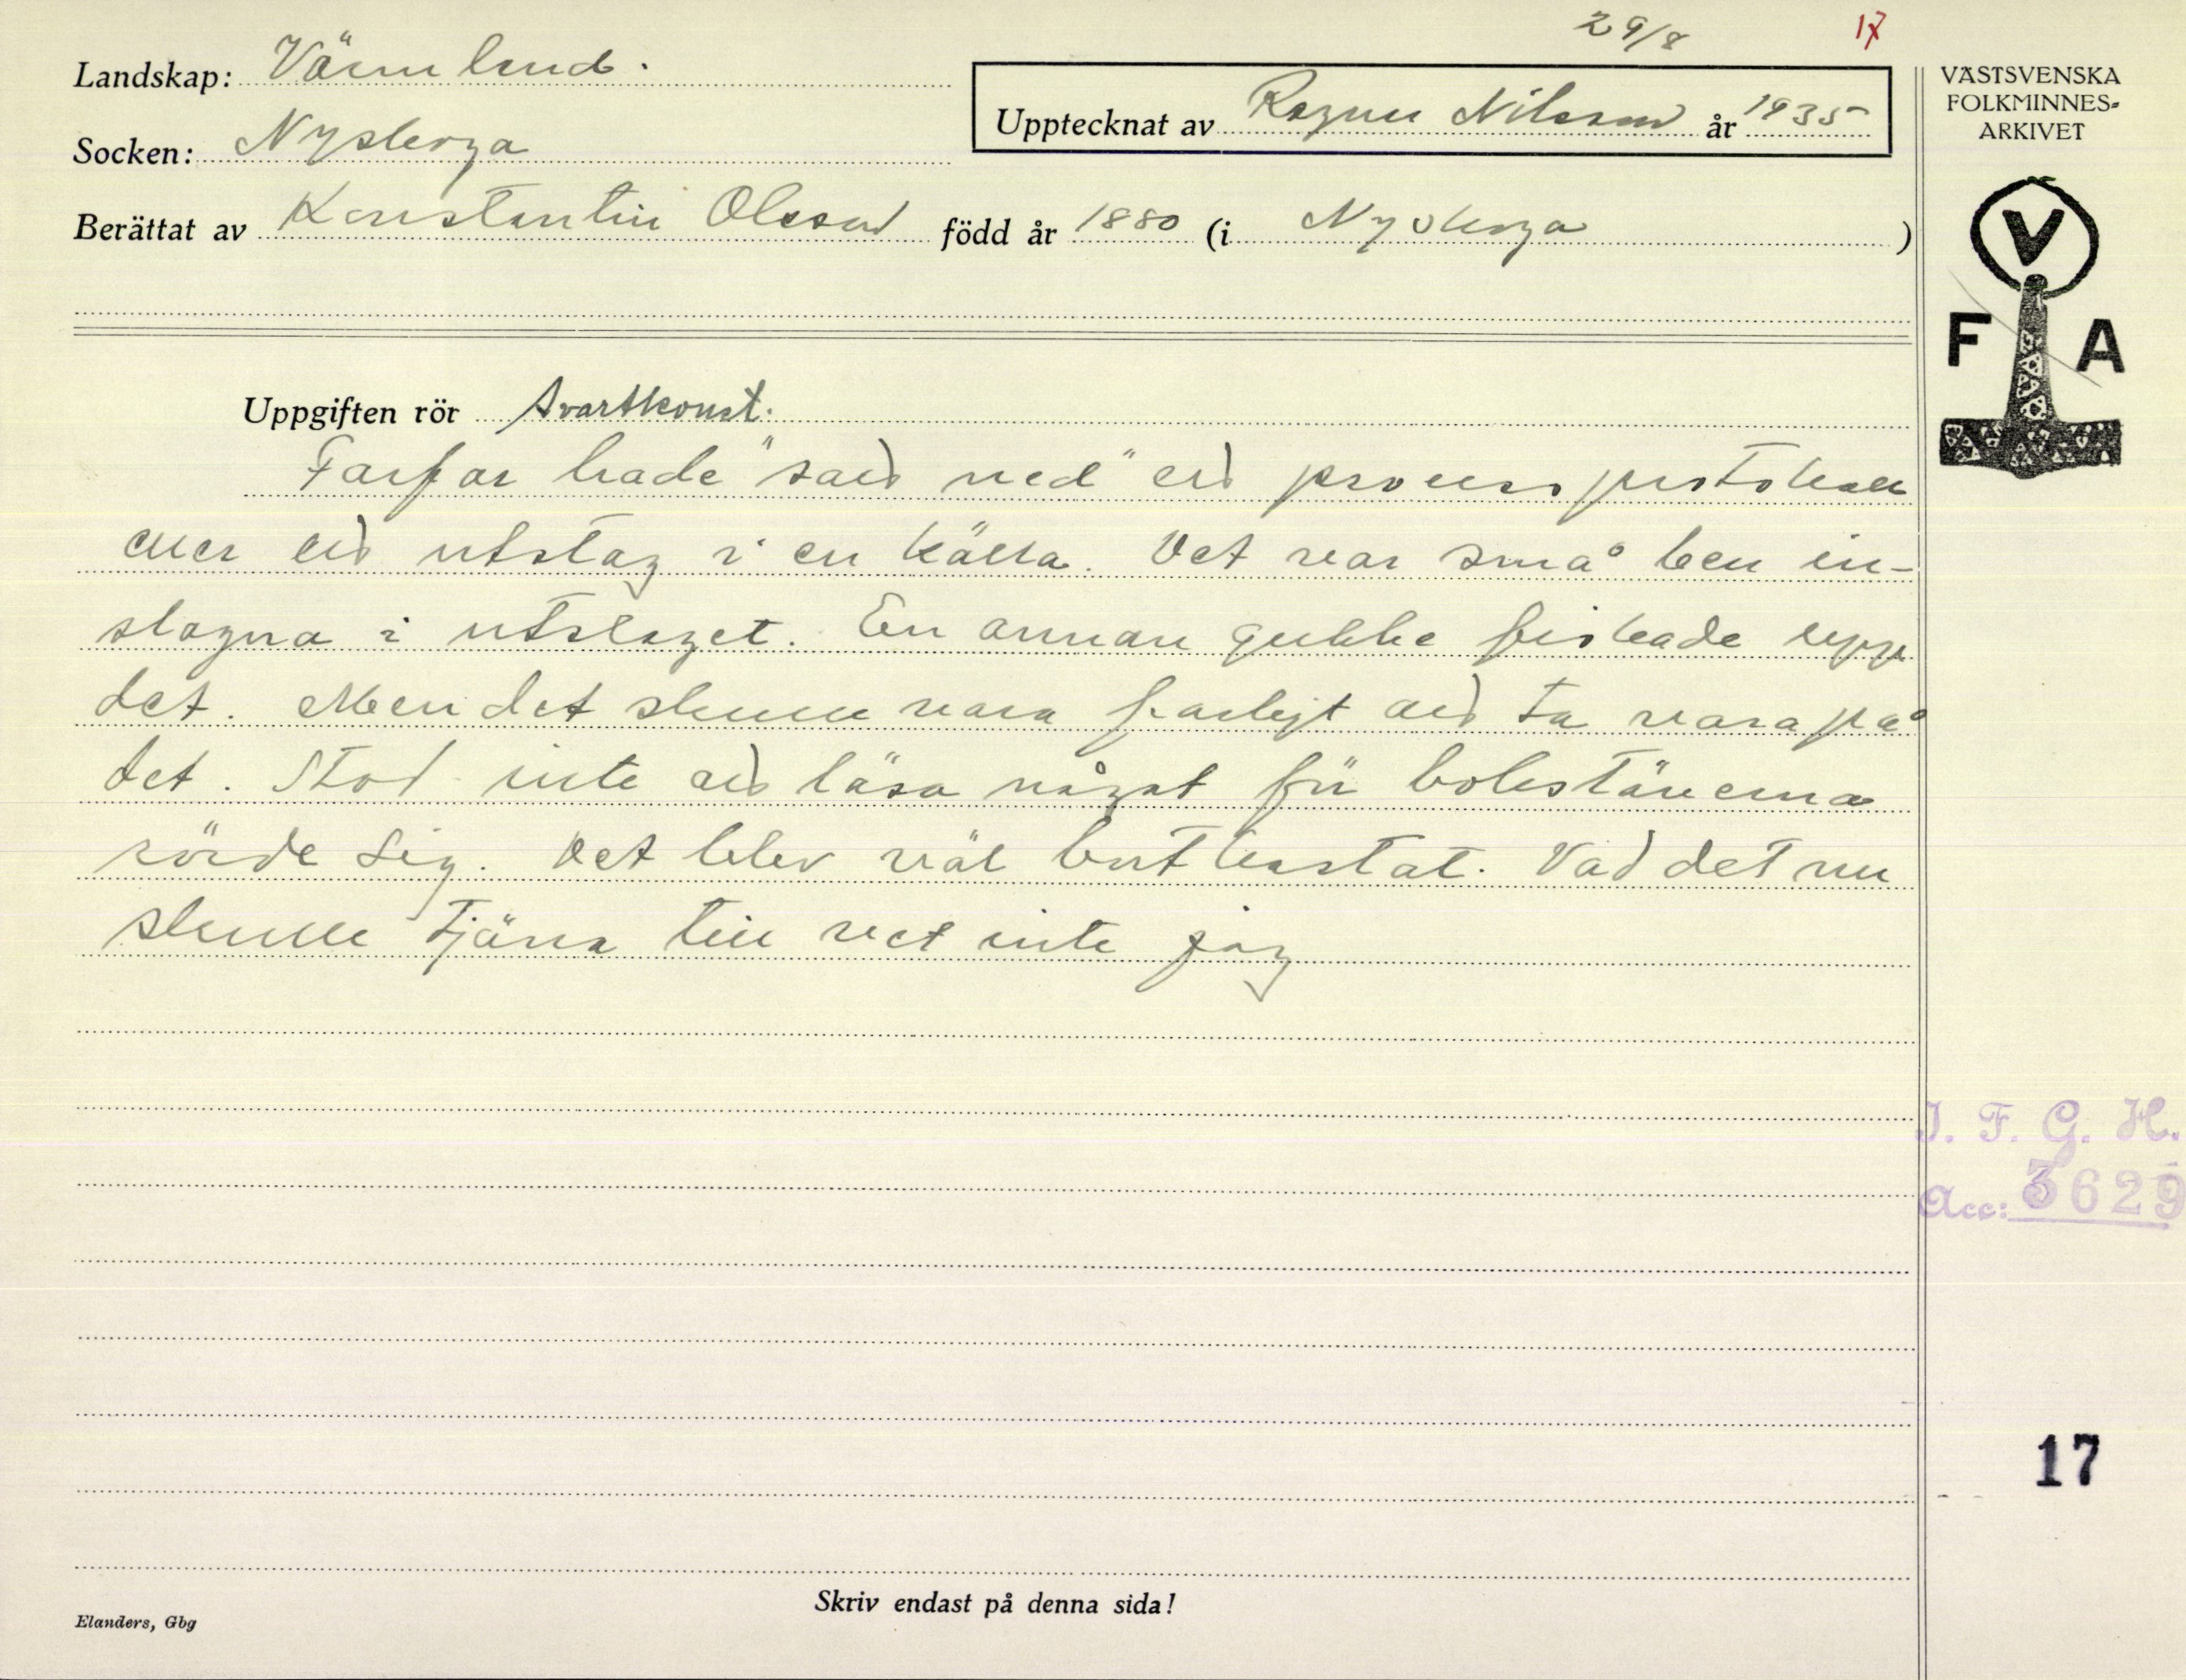 29/8 17
Landskap: Värmland.
Upptecknat av Ragnar Nilsson år 1935
Socken: Nyskoga
Berättat av Konstantin Olsson född år 1880 (i Nyskoga)
VÄSTSVENSKA
FOLKMINNES-
ARKIVET
V
F A
Uppgiften rör Svartkonst.
Farfar hade "satt ned" ett processprotokoll
eller ett utslag i en källa. Det var små ben in-
slagna i utslaget. En annan gubbe fiskade upp
det. Men det skulle vara farligt att ta vara på
det. Stod inte att läsa något för bokstäverna
rörde sig. Det blev väl bortkastat. Vad det nu
skulle tjäna till vet inte jag
I. F. G. H.
Acc: 3629
17
Skriv endast på denna sida!
Elanders, Gbg